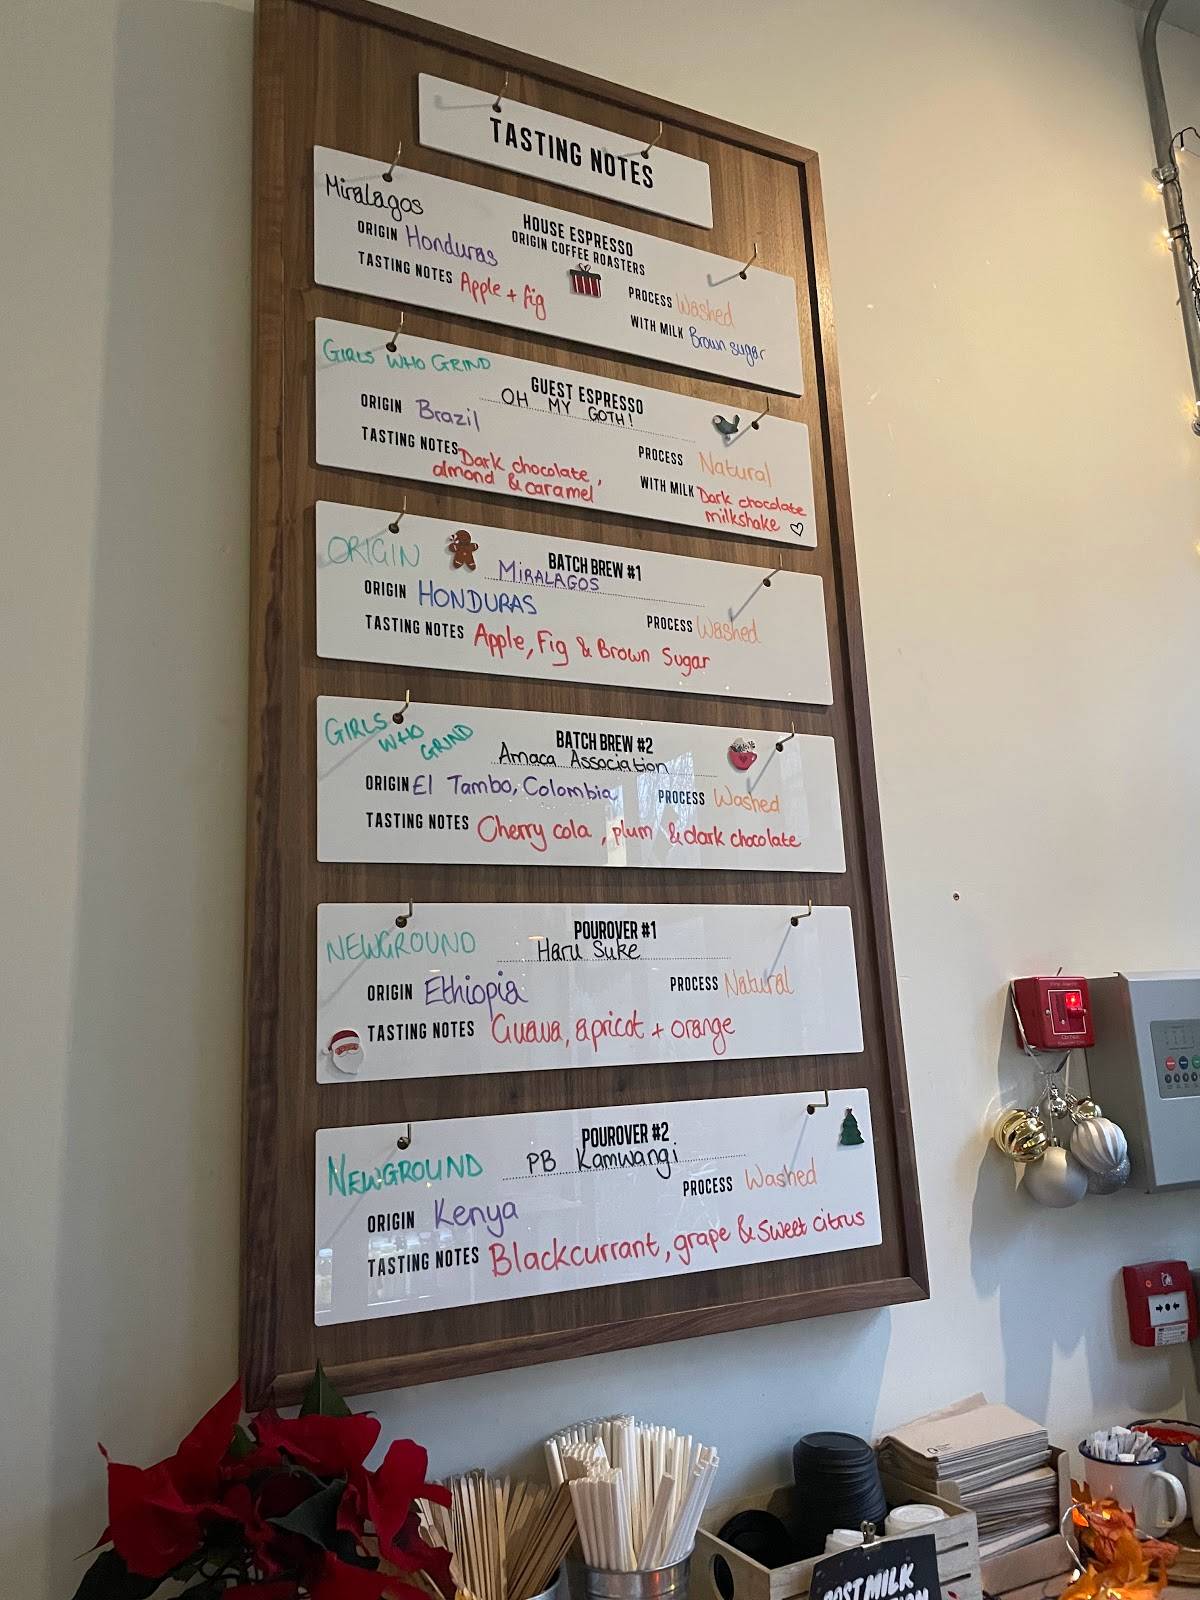 TASTING NOTES
Miralagos
HOUSE ESPRESSO
ORIGIN COFFEE ROASTERS
ORIGIN Honduras
TASTING NOTES Apple + fig
PROCESS Washed
WITH MILK Brown sugar
GIRLS WHO GRIND
GUEST ESPRESSO
OH MY GOTH!
ORIGIN Brazil
TASTING NOTES Dark chocolate,
almond & caramel
PROCESS Natural
WITH MILK Dark chocolate
milkshake ♡
ORIGIN
BATCH BREW #1
MIRALAGOS
ORIGIN HONDURAS
PROCESS Washed
TASTING NOTES Apple, Fig & Brown Sugar
GIRLS
WHO
GRIND
BATCH BREW #2
Amaca Association
ORIGIN El Tambo, Colombia
PROCESS Washed
TASTING NOTES Cherry cola, plum & dark chocolate
NEWGROUND
POUROVER #1
Haru Suke
ORIGIN Ethiopia
PROCESS Natural
TASTING NOTES Guava, apricot + orange
NEWGROUND
POUROVER #2
PB Kamwangi
PROCESS Washed
ORIGIN Kenya
TASTING NOTES Blackcurrant, grape & sweet citrus
MILK